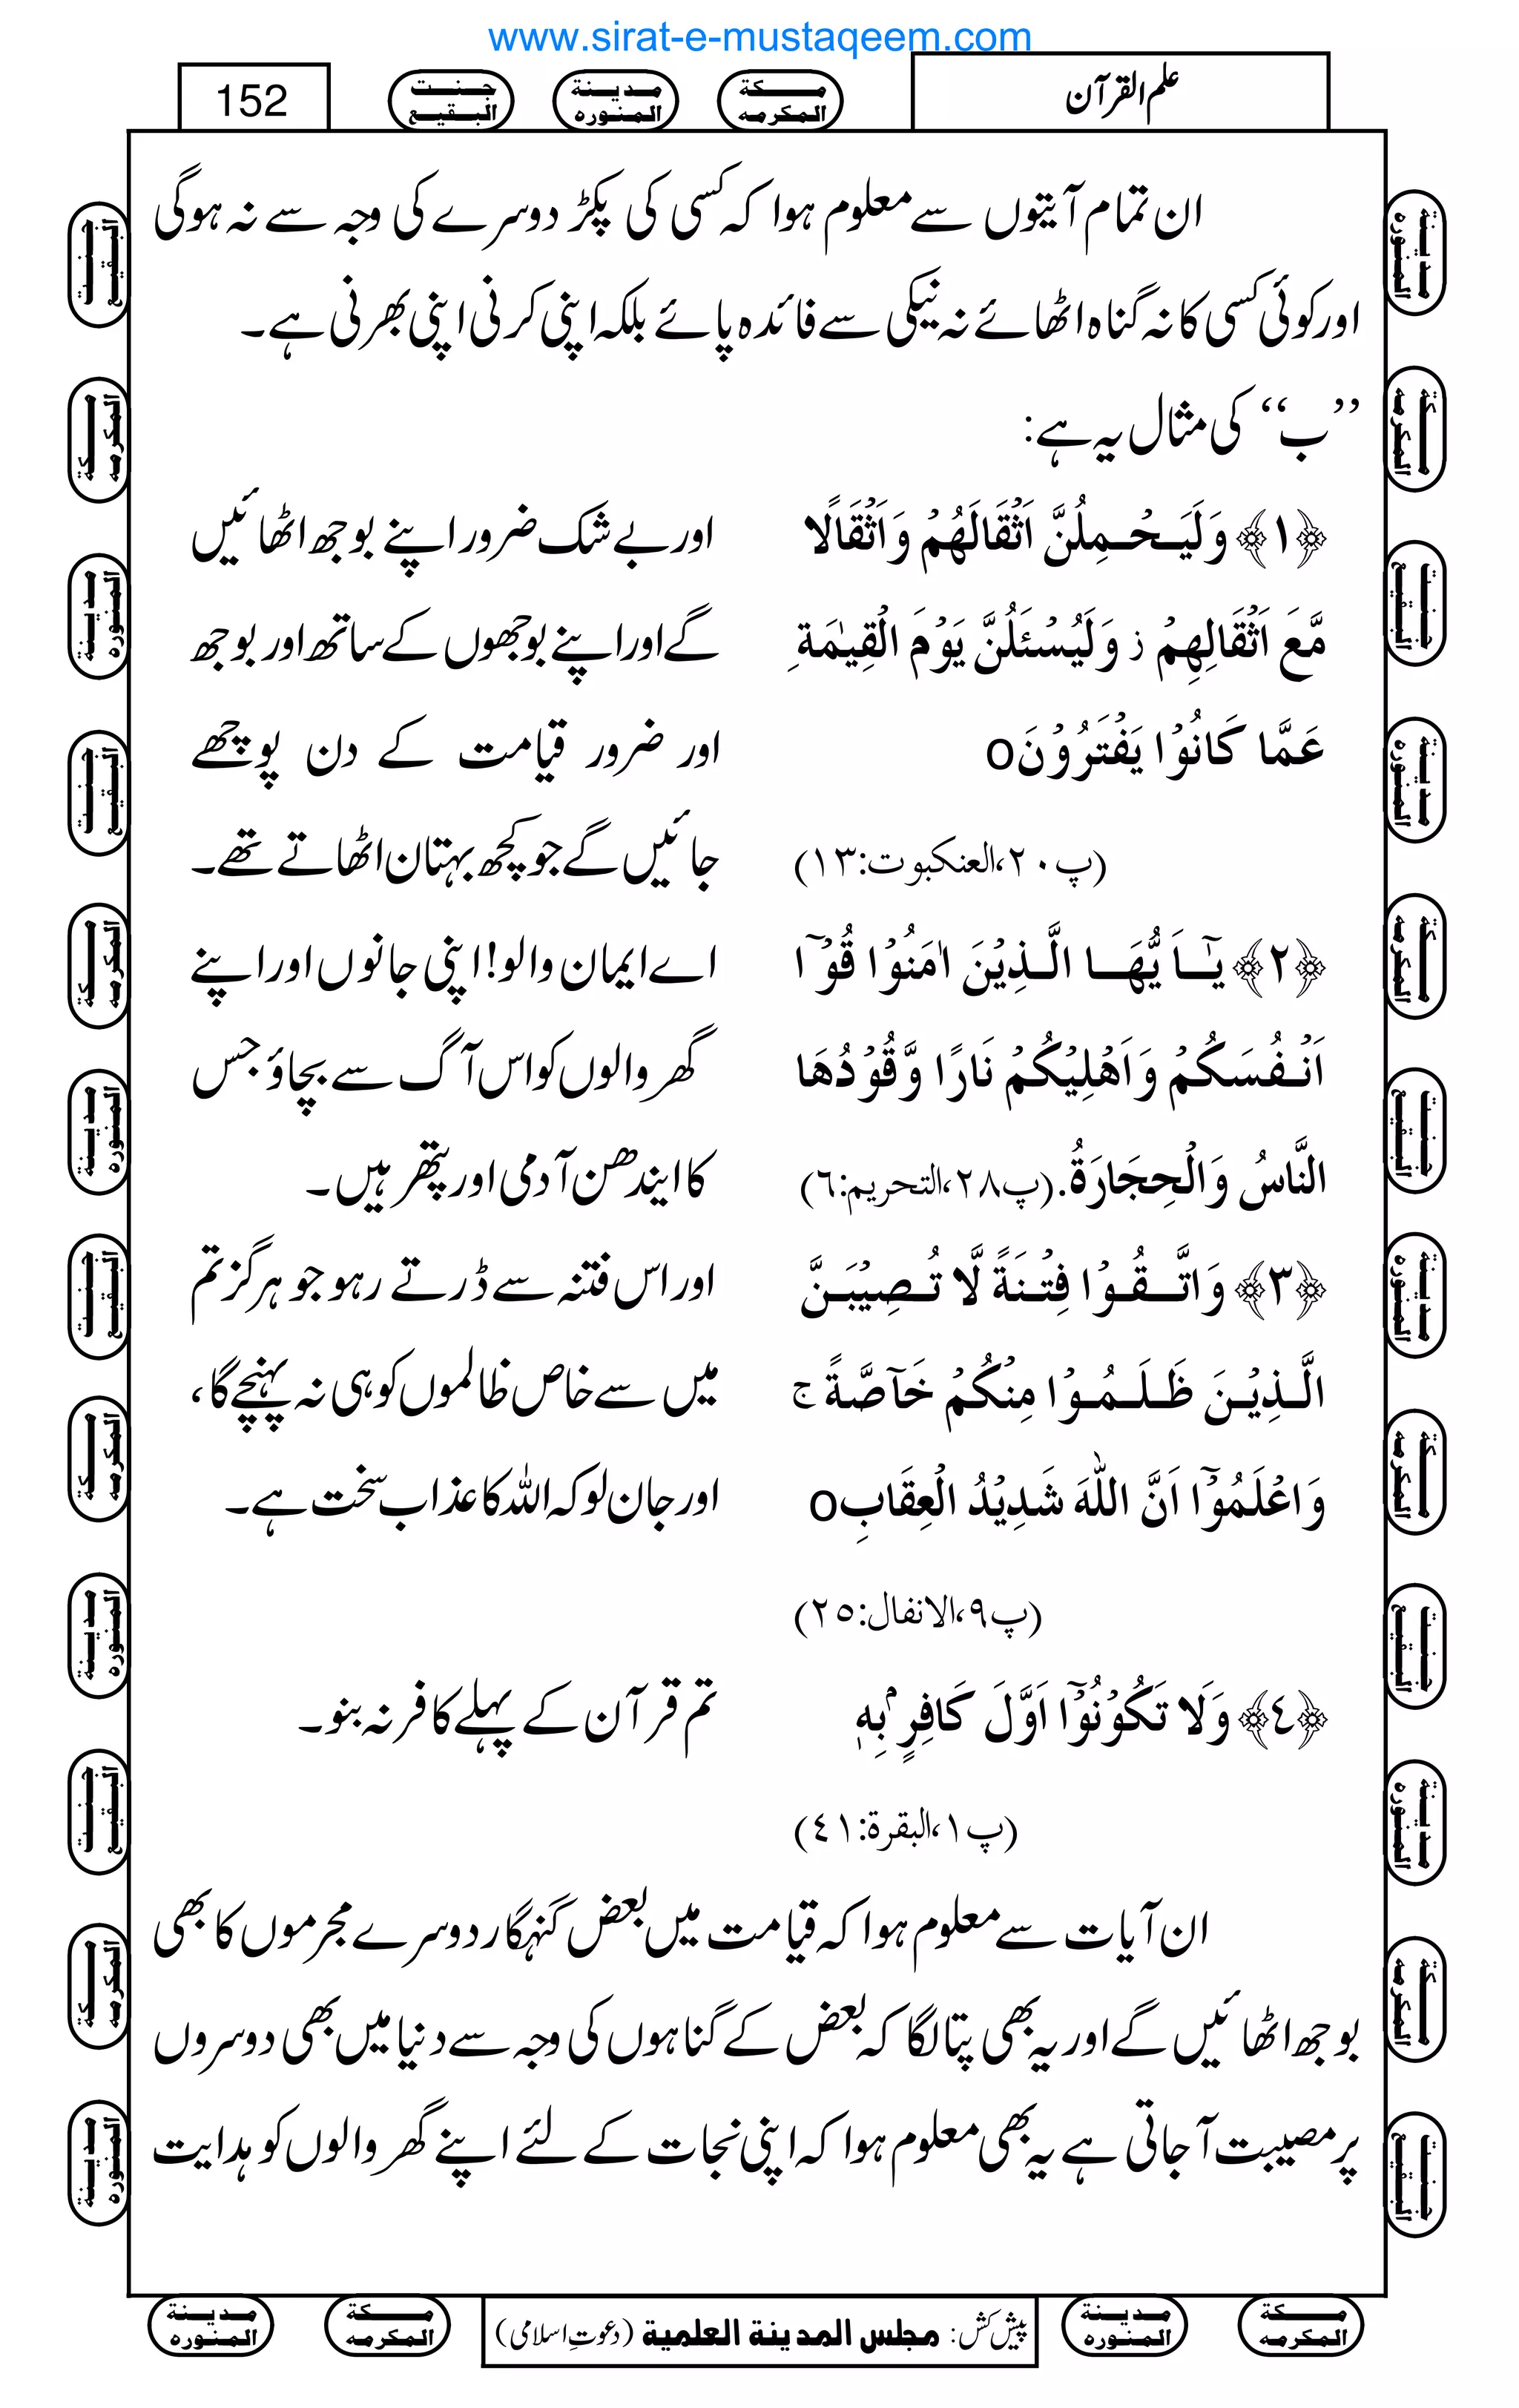 www.sirat-e-mustaqeem.com
علم القرآن
مكة المكرمه
مدينة المنوره
جنت البقيع
152
ان تمام آیتوں سے معلوم ہوا کہ کسی کی پکڑ دوسرے کی وجہ سے نہ ہوگی
اور کوئی کسی کا نہ گناہ اٹھائے نہ نیکی سے فائدہ پائے بلکہ اپنی کرنی اپنی بھرنی ہے۔
’’ب‘‘ کی مثال یہ ہے:
﴿١﴾ وَلَيَحْمِلُنَّ اَثْقَالَهُمْ وَاَثْقَالًا
مَّعَ اَثْقَالِهِمْ ز وَلَيُسْئَلُنَّ يَوْمَ الْقِيٰمَةِ
عَمَّا كَانُوْا يَفْتَرُوْنَ o
(پ٢٠،العنكبوت:١٣)
اور بے شک ضرور اپنے بوجھ اٹھائیں
گے اور اپنے بوجھوں کے ساتھ اور بوجھ
اور ضرور قیامت کے دن پوچھے
جائیں گے جو کچھ بہتان اٹھاتے تھے۔
﴿٢﴾ يٰٓاَيُّهَا الَّذِيْنَ اٰمَنُوْا قُوْٓا
اَنْفُسَكُمْ وَاَهْلِيْكُمْ نَارًا وَّقُوْدُهَا
النَّاسُ وَالْحِجَارَةُ. (پ٢٨،التحريم:٦)
اے ایمان والو! اپنی جانوں اور اپنے
گھر والوں کو اس آگ سے بچاؤ جس
کا ایندھن آدمی اور پتھر ہیں۔
﴿٣﴾ وَاتَّقُوْا فِتْنَةً لَّا تُصِيْبَنَّ
الَّذِيْنَ ظَلَمُوْا مِنْكُمْ خَآصَّةً ج
وَاعْلَمُوْٓا اَنَّ اللّٰهَ شَدِيْدُ الْعِقَابِ o
(پ٩،الانفال:٢٥)
اور اس فتنہ سے ڈرتے رہو جو ہرگز تم
میں سے خاص ظالموں کو ہی نہ پہنچے گا،
اور جان لو کہ اللہ کا عذاب سخت ہے۔
﴿٤﴾ وَلَا تَكُوْنُوْٓا اَوَّلَ كَافِرٍۢ بِهٖ
(پ١،البقرة:٤١)
تم قرآن کے پہلے کافر نہ بنو۔
ان آیات سے معلوم ہوا کہ قیامت میں بعض گنہگار دوسرے مجرموں کا بھی
بوجھ اٹھائیں گے اور یہ بھی پتا لگا کہ بعض کے گناہوں کی وجہ سے دنیا میں بھی دوسروں
پر مصیبت آجاتی ہے یہ بھی معلوم ہوا کہ اپنی نجات کے لئے اپنے گھر والوں کو ہدایت
مكة المكرمه
مدينة المنوره
پیش کش: مجلس المدينة العلمية (دعوتِ اسلامی)
مكة المكرمه
مدينة المنوره